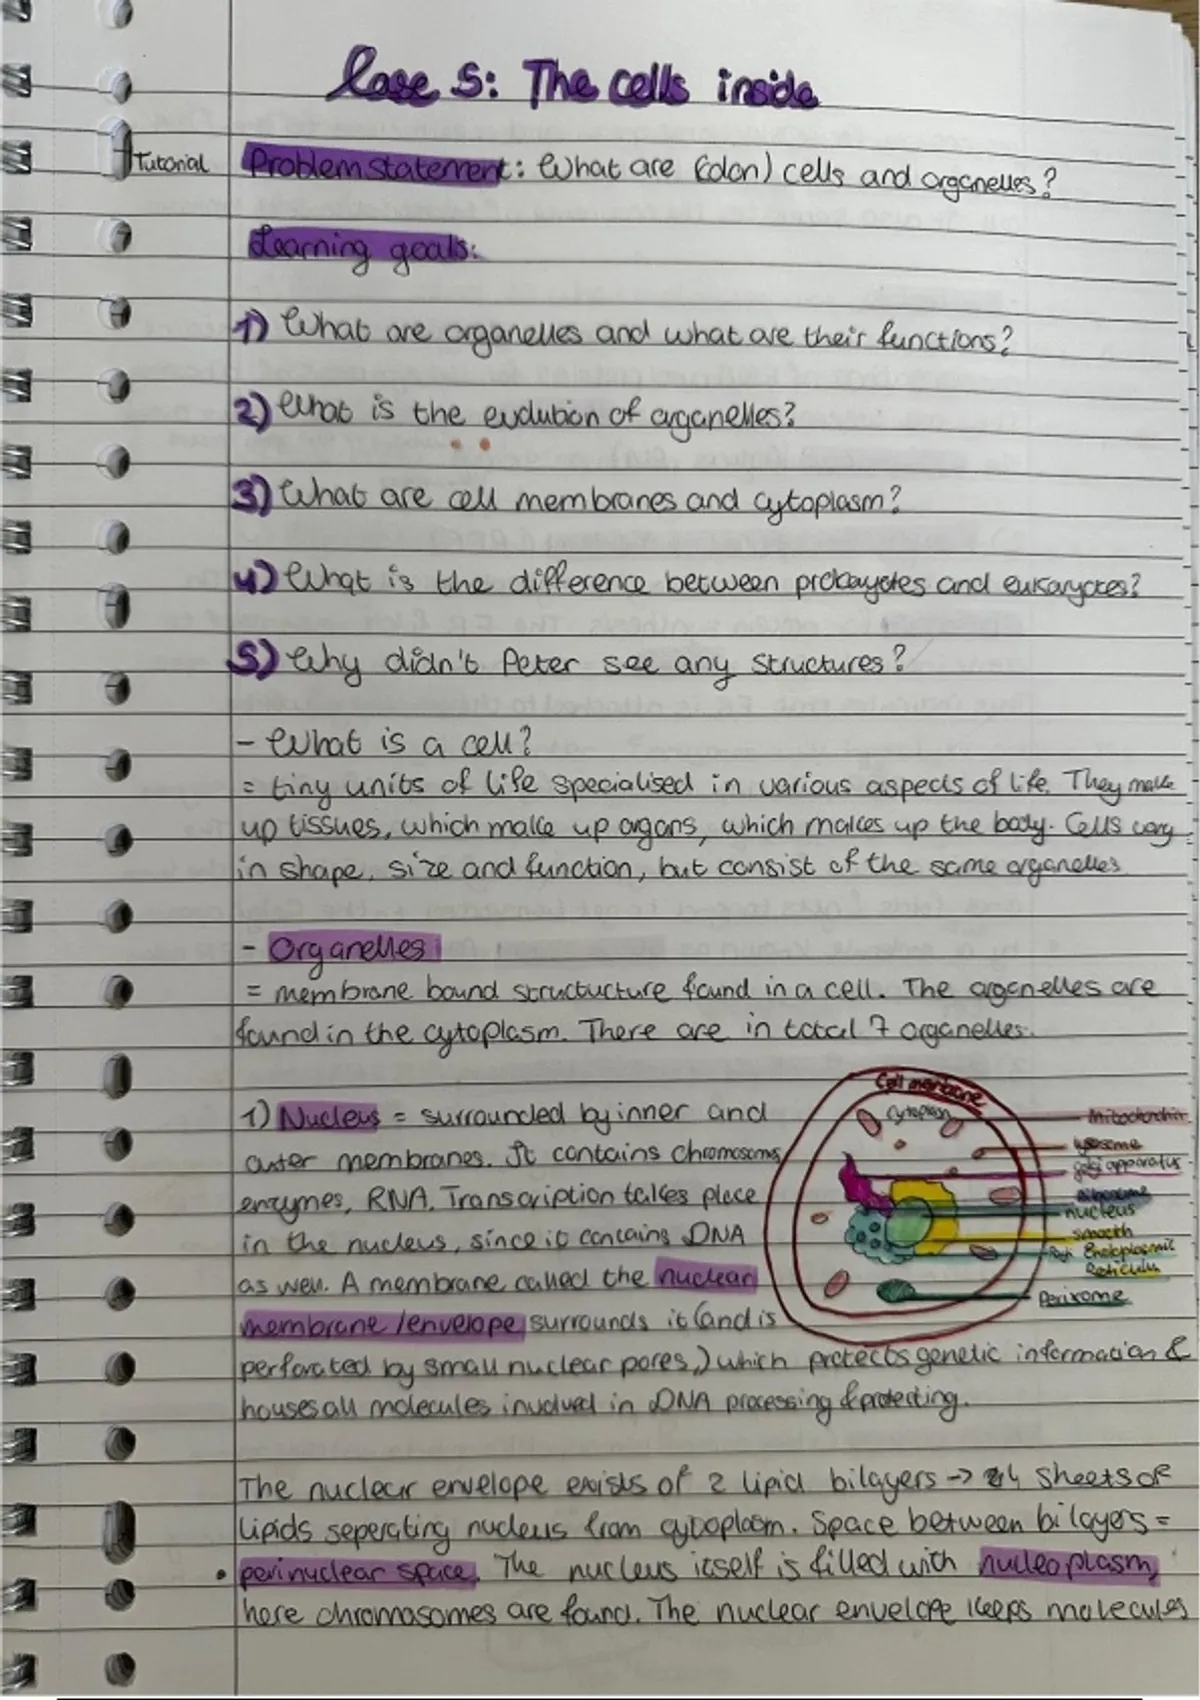 Case 5: The cells inside
Tutorial
Problem statement: What are (colon) cells and organelles?
Learning goals:
1) What are organelles and what are their functions?
2) What is the evolution of organelles?
3) What are cell membranes and cytoplasm?
4) What is the difference between prokaryotes and eukaryotes?
5) Why didn't Peter see any structures?
- What is a cell?
= tiny units of life specialised in various aspects of life. They make
up tissues, which make up organs, which makes up the body. Cells vary
in shape, size and function, but consist of the same organelles
- Organelles:
= membrane bound structucture found in a cell. The organelles are
found in the cytoplasm. There are in total 7 organelles.
1) Nucleus = surrounded by inner and
outer membranes. It contains chromosoms,
enzymes, RNA. Transcription takes place
in the nucleus, since it contains DNA
as well. A membrane called the nuclear
membrane/envelope surrounds it (and is
perforated by small nuclear pores,) which protects genetic information &
houses all molecules involved in DNA processing & protecting.
Cell membrane
Cytoplasm
Mitochondrin
lysosome
golgi apparatus
Ribosome
nucleus
smooth
Rough Endoplasmic
Reticulum
Perixome
The nuclear envelope exists of 2 lipid bilayers -> 4 sheets of
lipids seperating nucleus from cytoplasm. Space between bilayers =
perinuclear space. The nucleus itself is filled with nucleoplasm,
here chromosomes are found. The nuclear envelope keeps molecules